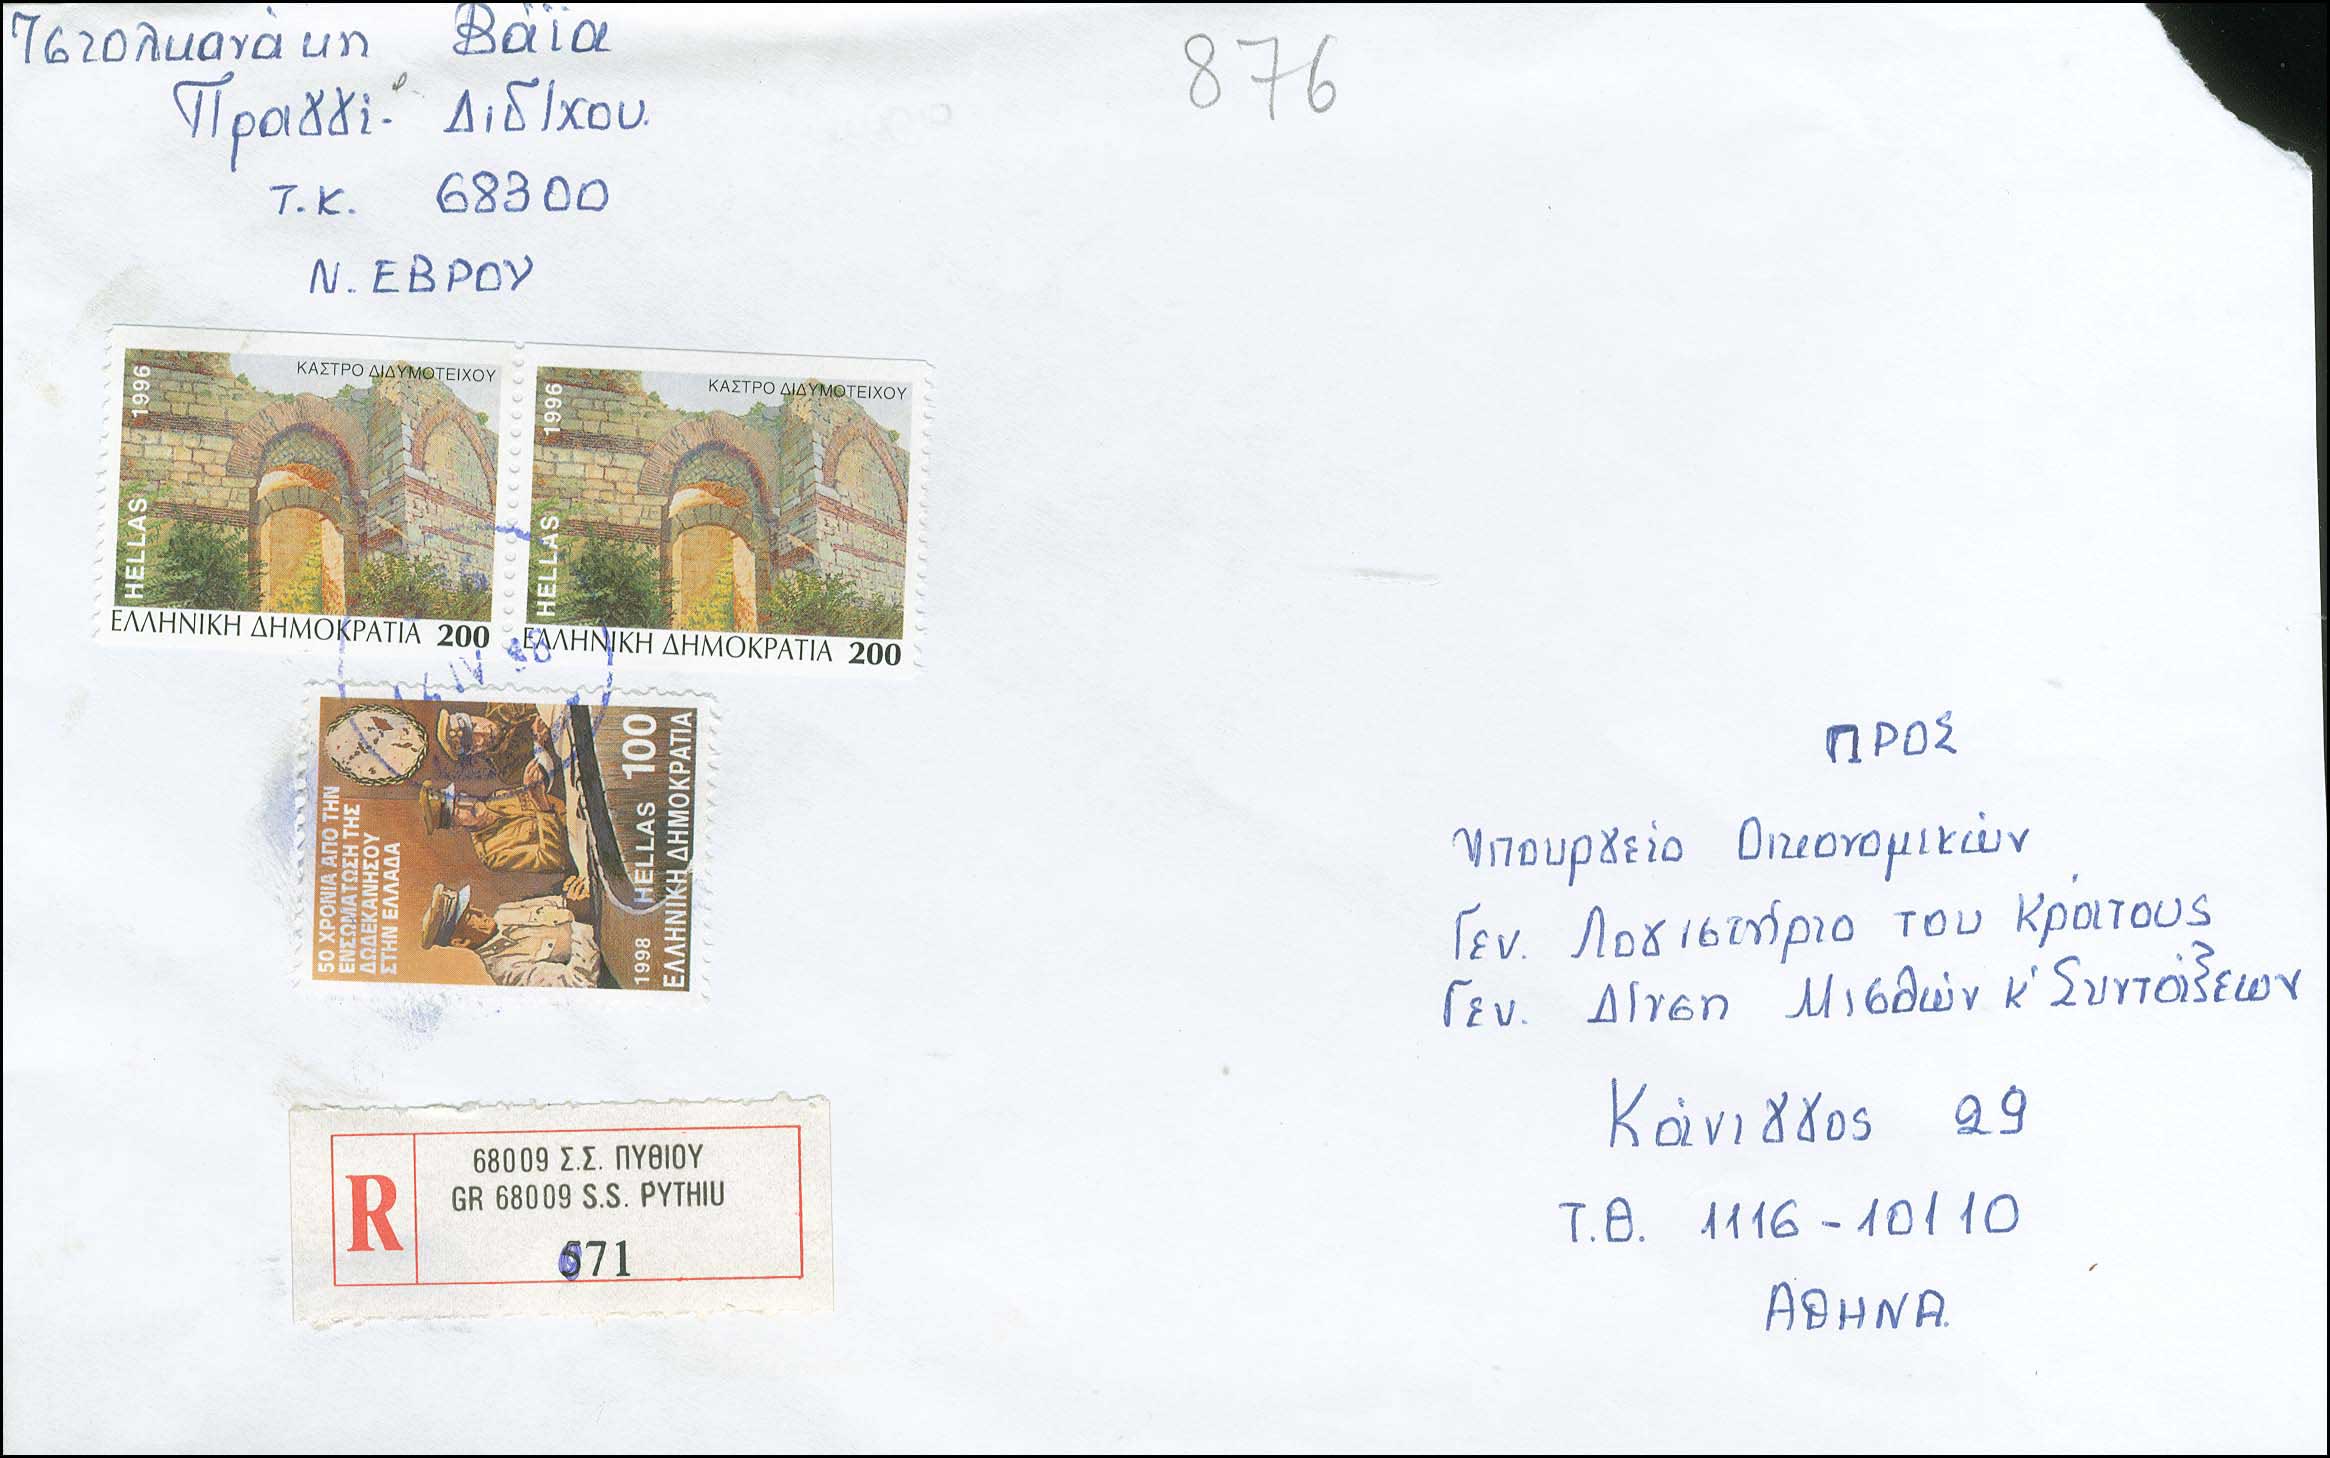 Βάϊα
876
Πραγγί - Διδ/χου.
Τ.Κ. 68300
Ν. ΕΒΡΟΥ
ΚΑΣΤΡΟ ΔΙΔΥΜΟΤΕΙΧΟΥ
HELLAS 1996
ΕΛΛΗΝΙΚΗ ΔΗΜΟΚΡΑΤΙΑ 200
ΚΑΣΤΡΟ ΔΙΔΥΜΟΤΕΙΧΟΥ
HELLAS 1996
ΕΛΛΗΝΙΚΗ ΔΗΜΟΚΡΑΤΙΑ 200
IV
50 ΧΡΟΝΙΑ ΑΠΟ ΤΗΝ
ΕΝΣΩΜΑΤΩΣΗ ΤΗΣ
ΔΩΔΕΚΑΝΗΣΟΥ
ΣΤΗΝ ΕΛΛΑΔΑ
1998 HELLAS 100
ΕΛΛΗΝΙΚΗ ΔΗΜΟΚΡΑΤΙΑ
R
68009 Σ.Σ. ΠΥΘΙΟΥ
GR 68009 S.S. PYTHIU
671
ΠΡΟΣ
Υπουργείο Οικονομικών
Γεν. Λογιστήριο του Κράτους
Γεν. Δ/νση Μισθών κ' Συντάξεων
Κάνιγγος 29
Τ.Θ. 1116 - 10110
ΑΘΗΝΑ.